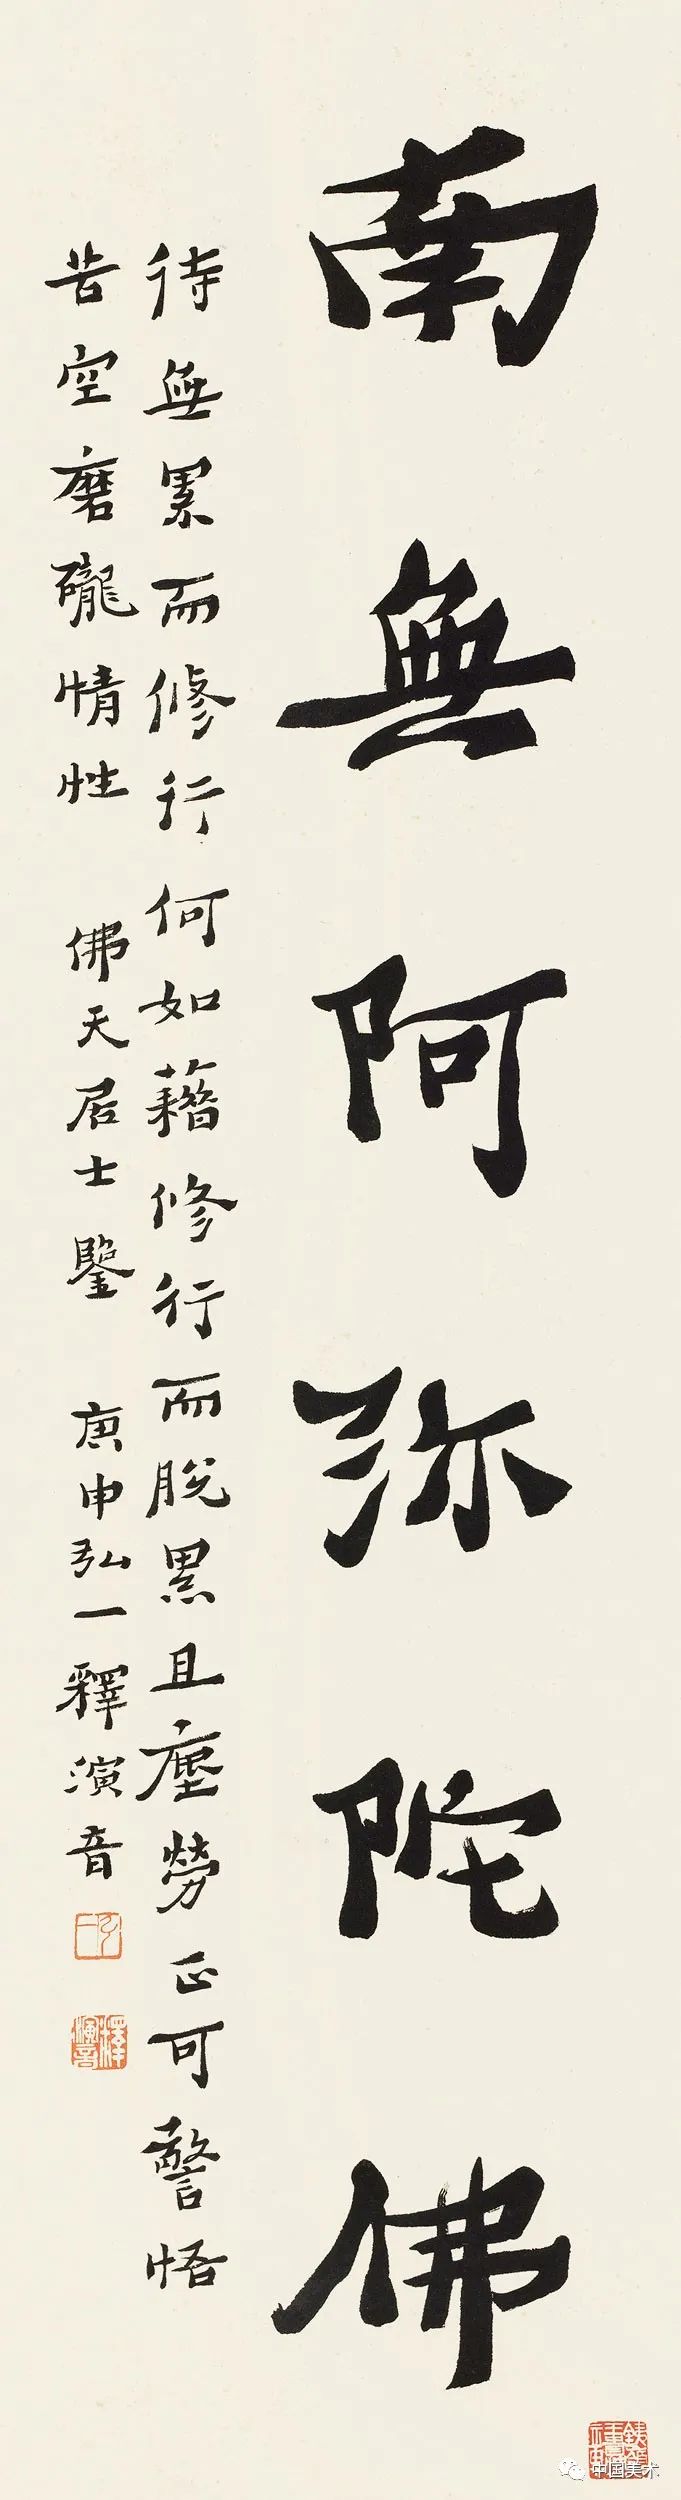 南無阿弥陀佛
待無累而修行何如藉修行而脫累且塵勞正可警悟
苦空磨礲情性 佛天居士鑒 庚申弘一釋演音
弘一
釋演音
中国美术